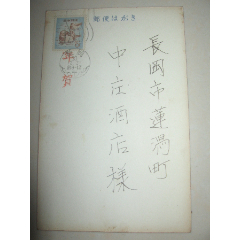 郵便はがき
年賀
長岡市蓮潟町
中庄酒店様